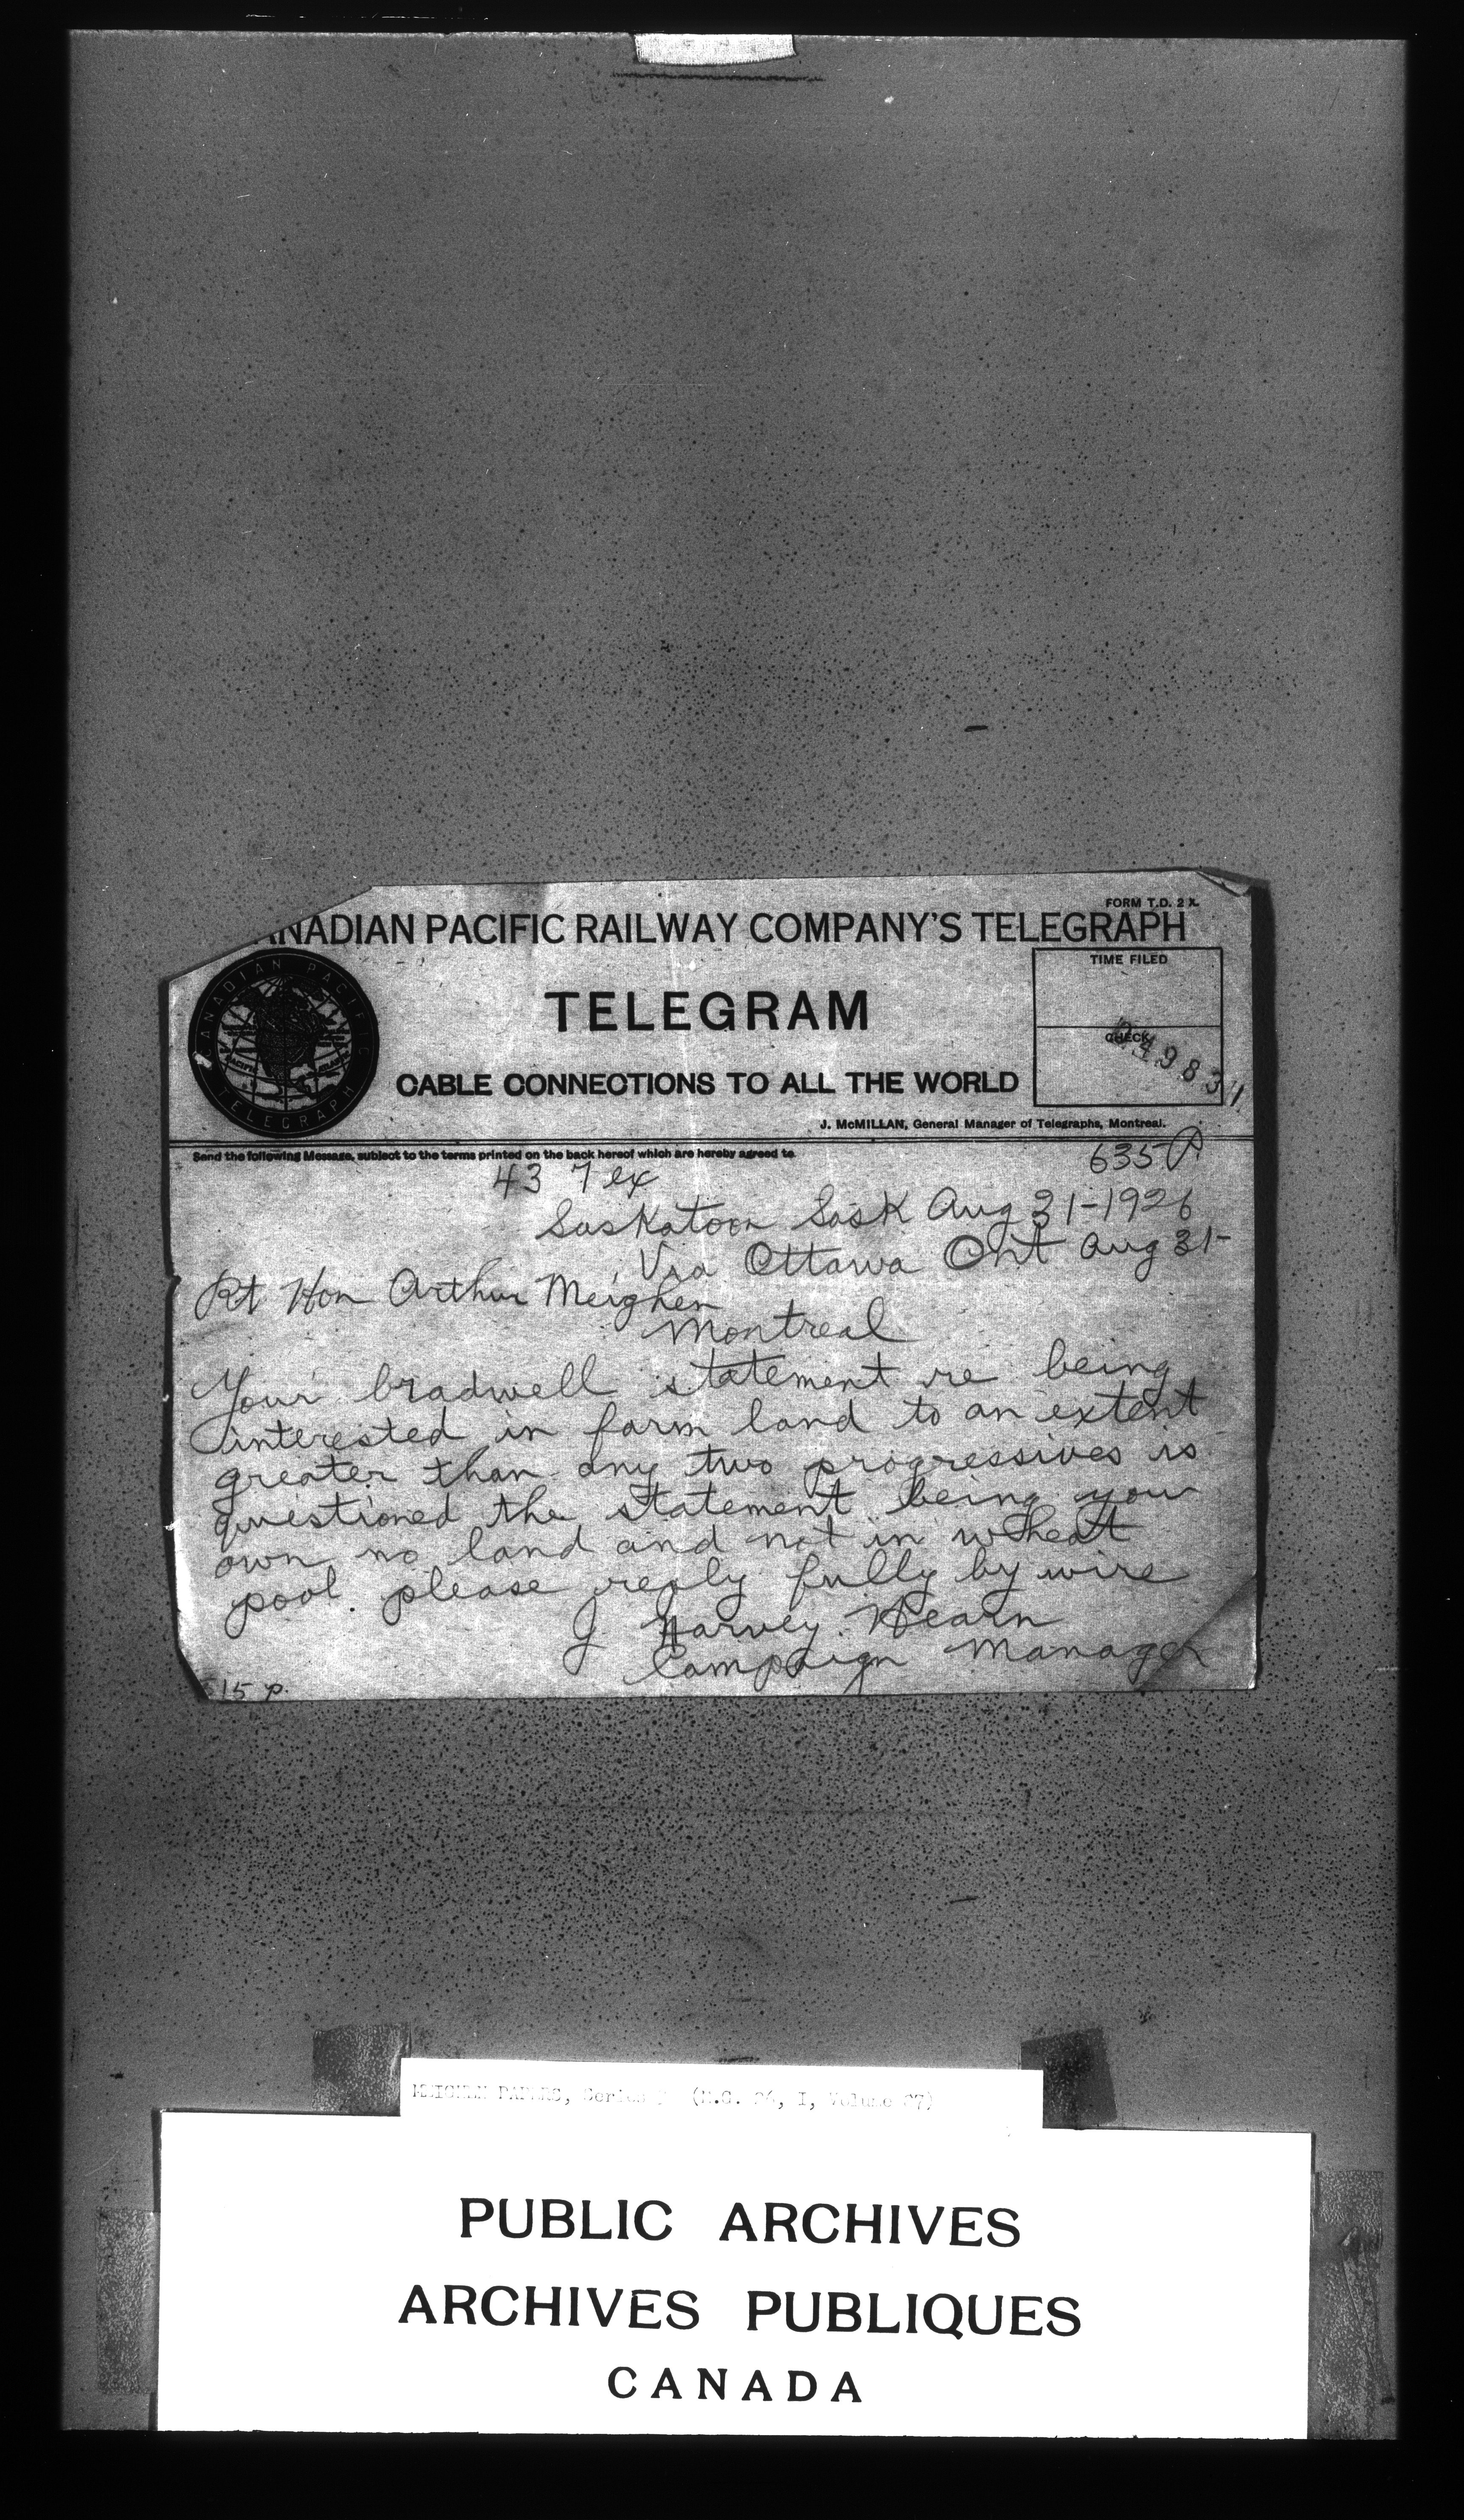 FORM T.D. 2 X.
ANADIAN PACIFIC RAILWAY COMPANY'S TELEGRAPH
TIME FILED
CANADIAN PACIFIC
TELEGRAPH
TELEGRAM
CHECK
CABLE CONNECTIONS TO ALL THE WORLD
J. McMILLAN, General Manager of Telegraphs, Montreal.
Send the following Message, subject to the terms printed on the back hereof which are hereby agreed to.
635 P
43 7 ex
Saskatoon Sask Aug 31-1926
Via Ottawa Ont Aug 31-
Rt Hon Arthur Meighen
Montreal
Your bradwell statement re being
interested in farm land to an extent
greater than any two progressives is
questioned the statement being you
own no land and not in wheat
pool. please reply fully by wire
J Harvey. Hearn
Campaign Manager
15 p.
MEIGHEN PAPERS, Series (M.G. 26, I, Volume 87)
PUBLIC ARCHIVES
ARCHIVES PUBLIQUES
CANADA